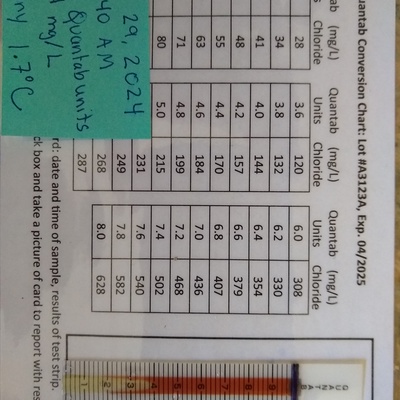 Quantab Conversion Chart: Lot #A3123A, Exp. 04/2025
(mg/L) Quantab (mg/L) Quantab (mg/L)
Chloride Units Chloride Units Chloride
28 3.6 120 6.0 308
34 3.8 132 6.2 330
41 4.0 144 6.4 354
48 4.2 157 6.6 379
55 4.4 170 6.8 407
63 4.6 184 7.0 436
71 4.8 199 7.2 468
80 5.0 215 7.4 502
231 7.6 540
249 7.8 582
268 8.0 628
287
29, 2024
40 AM
Quantab units
mg/L
1.7°C
date and time of sample, results of test strip.
box and take a picture of card to report with
QUANTAB
1 2 3 4 5 6 7 8 9